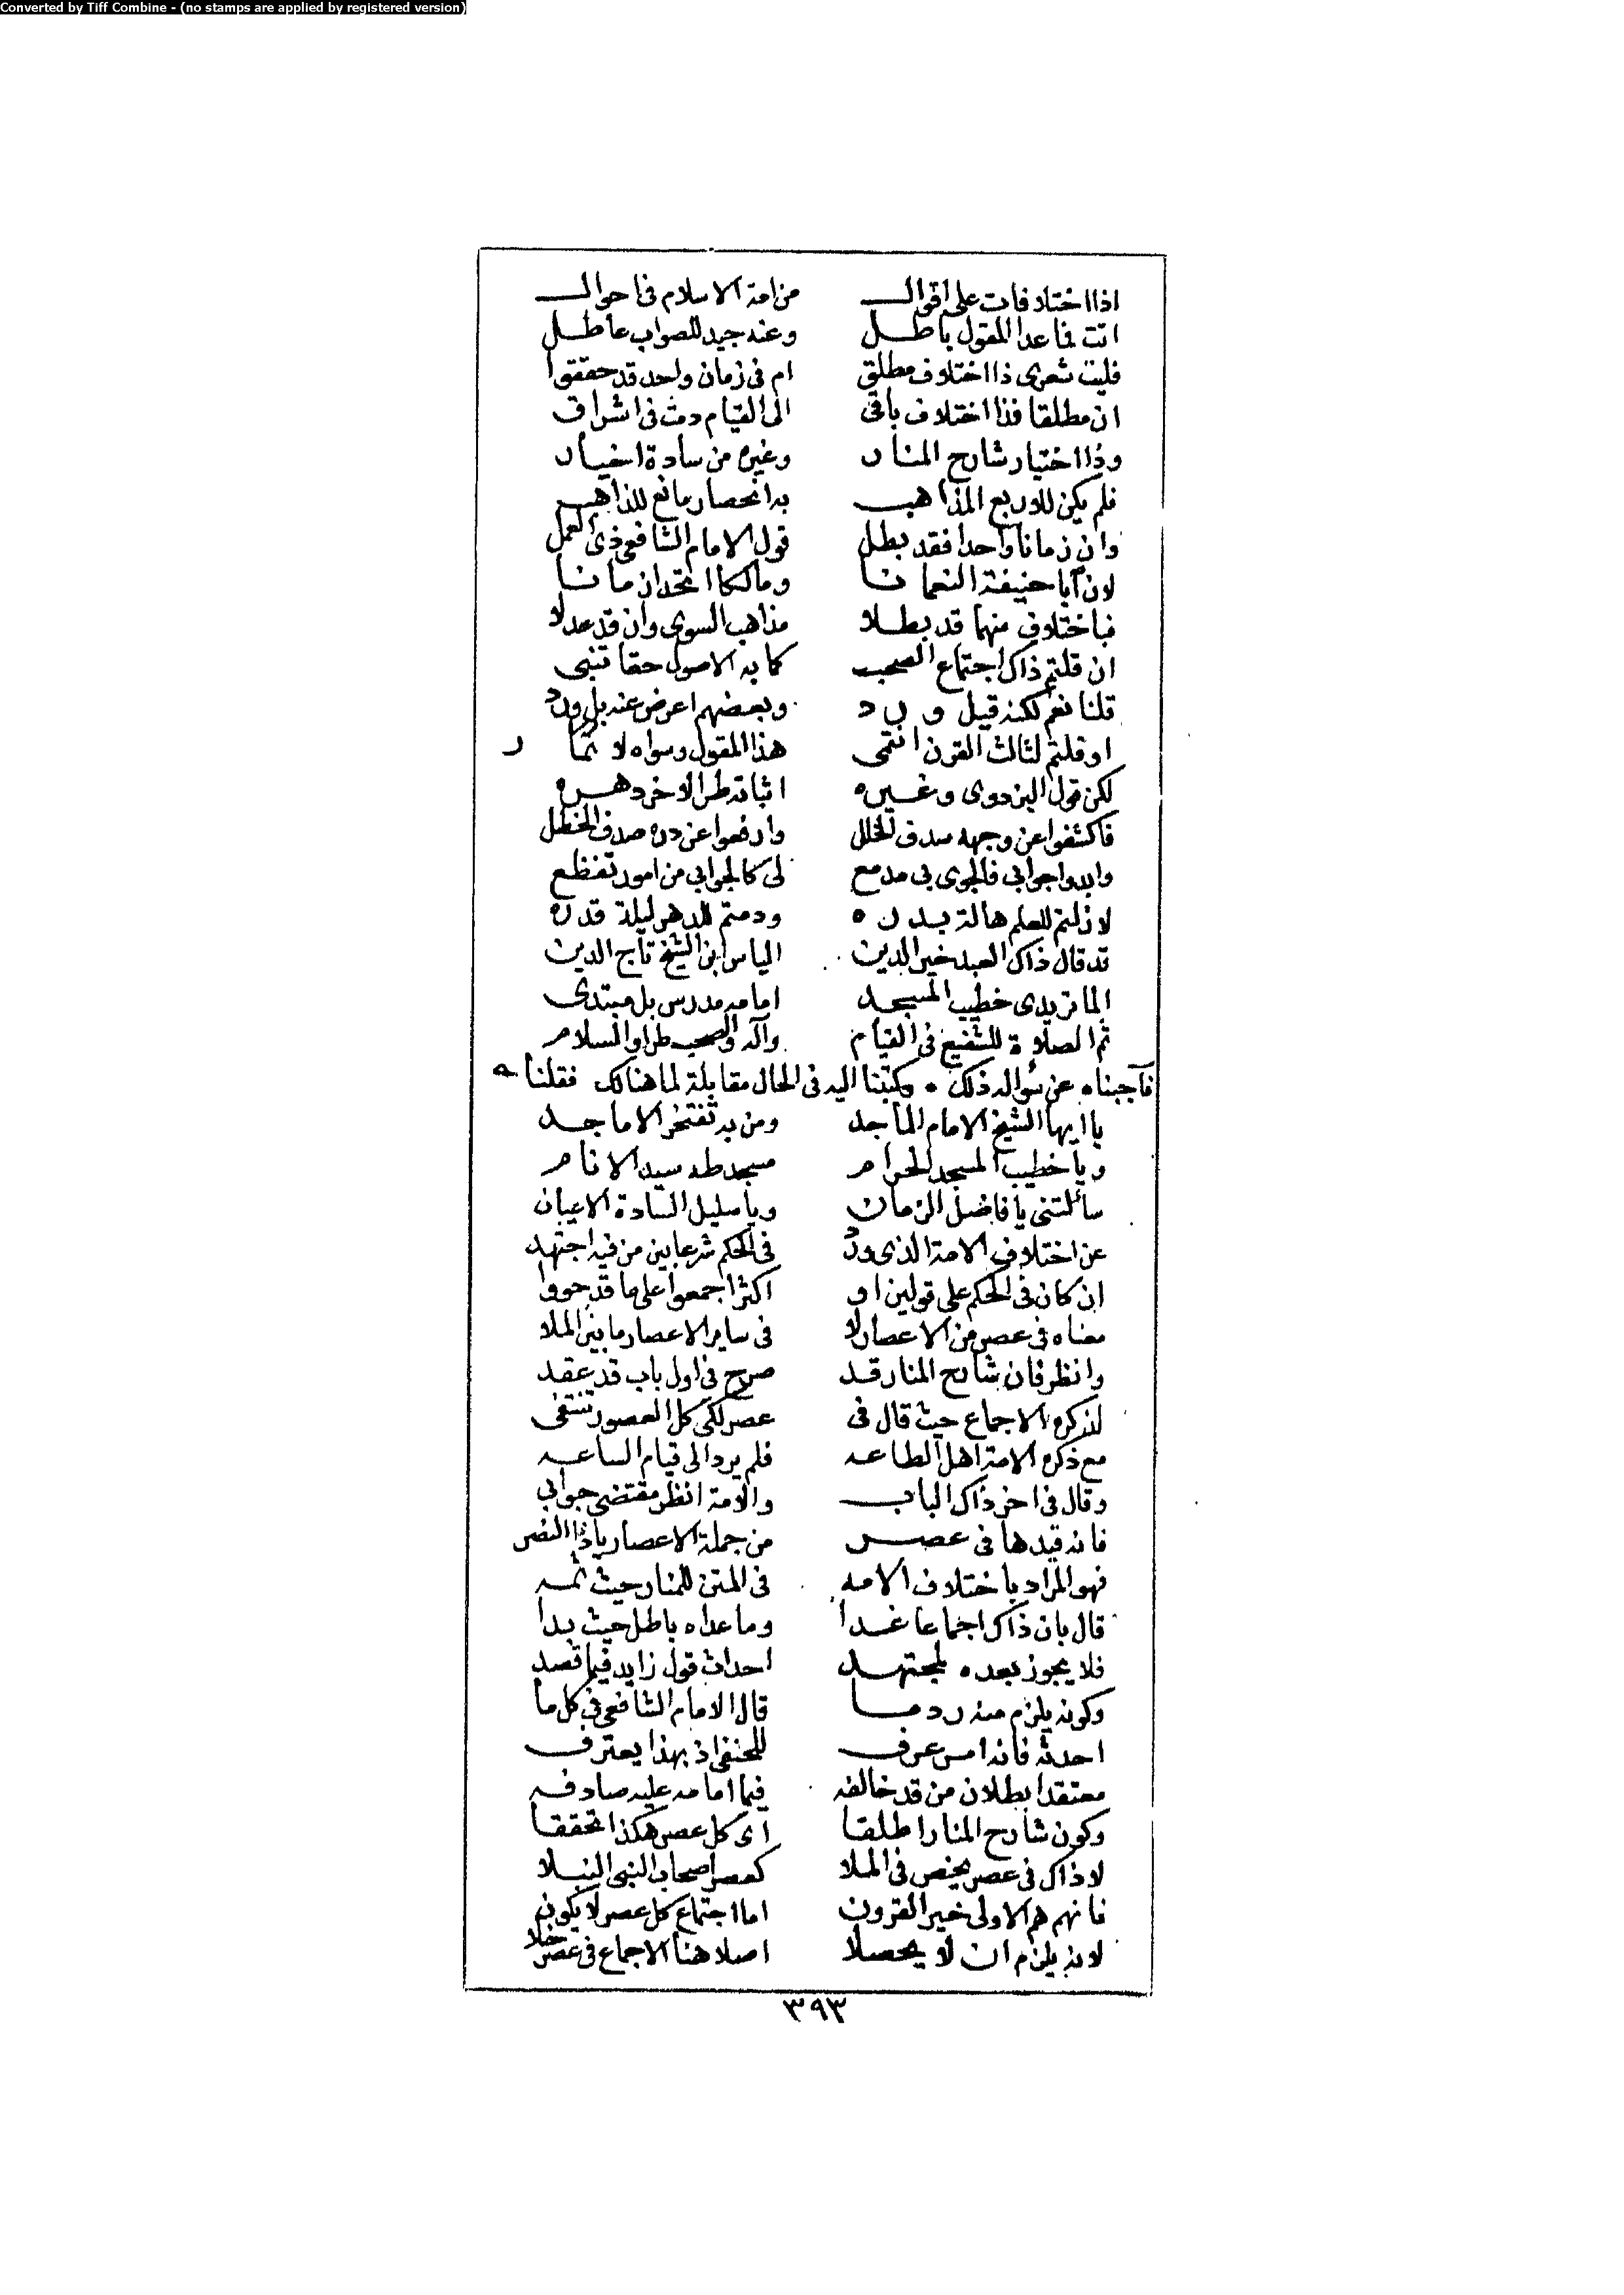 Converted by Tiff Combine - (no stamps are applied by registered version)
اذا اختلافات على اقوال من امة الاسلام فى احوال
اتت فما عدا المقول باطل وعنه جيد للصواب عاطل
فليت شعرى ذا اختلاف مطلق ام فى زمان واحد قد حققوا
ان مطلقا فذا اختلاف باقى الى القيام دمت فى اشراق
وذا اختيار شارح المنار وغيره من سادة اخيار
فلم يكن للاربع المذاهب به انحصار مانع للذاهب
وان زمانا واحدا فقد بطل قول الامام الشافعى ذى العمل
لان أبا حنيفة النعمانا ومالكا اتحدا زمانا
فباختلاف منهما قد بطلا مذاهب السوى وان قد عدلا
ان قلتم ذاك اجتماع الصحب كما به الاصول حقا تنبى
قلنا نعم لكنه قيل ورد وبعضهم اعرض عنه بل ورد
او قلتم لثالث القرن انتمى هذا المقول وسواه لا
لكن قول البزدوى وغيره اثباته طرا لاخر دهره
فاكشفوا عن وجهه سدف الخلل وارفعوا عن دره صدف الخطل
وابدوا جوابى فالجوى بى مدمع لى كالجوابى من امور تفظع
لازلتم للعلم هالة بدره ودمتم للدهر ليلة قدره
قد قال ذاك العبد خير الدين الياس ابن الشيخ تاج الدين
الماتريدى خطيب المسجد امامه مدرس بل مبتدى
ثم الصلاة للشفيع فى القيام وآله والصحب طرا والسلام
فآجبناه عن سؤاله ذلك ٠ وكتبنا اليه فى الحال مقابلة لما هنالك فقلنا
يا ايها الشيخ الامام الماجد ومن به تفتخر الاماجد
ويا خطيب المسجد الحرام مسجد طه سيد الانام
سائلتنى يا فاضل الزمان ويا سليل السادة الاعيان
عن اختلاف الامة الذى ورد فى الحكم شرعا بين من فيه اجتهد
ان كان فى الحكم على قولين او اكثر اجمعوا على ما قد حووا
معناه فى عصر من الاعصار لا فى ساير الاعصار ما بين الملا
وانظر فان شارح المنار قد صرح فى اول باب قد عقد
لذكره الاجماع حيث قال فى عصر لكى كل العصور تنتفى
مع ذكره الامة اهل الطاعه فلم يرد الى قيام الساعه
وقال فى اخر ذاك الباب والامة انظر مقتضى جوابى
فانه قيدها فى عصر من جملة الاعصار يا ذا النصر
فهو المراد باختلاف الامه فى المتن للمنار حيث ثمه
قال بان ذاك اجماعا غدا وما عداه باطل حيث بدا
فلا يجوز بعده لمجتهد احداث قول زايد فيما قصد
وكونه يلزم منه رد ما قال الامام الشافعى فى كل ما
احدثه فانه امر عرف للحنفى اذ بهذا يعترف
معتقدا بطلان من قد خالفه فيما امامه عليه صادفه
وكون شارح المنار اطلقا اى كل عصر هكذا تحققا
لا ذاك فى عصر يخص فى الملا كعصر اصحاب النبى النبلا
فانهم هم الاولى خير القرون اما اجتماع كل عصر لا يكون
لانه يلزم ان لا يحصلا اصلا هنا الاجماع فى عصر خلا
٣٩٣